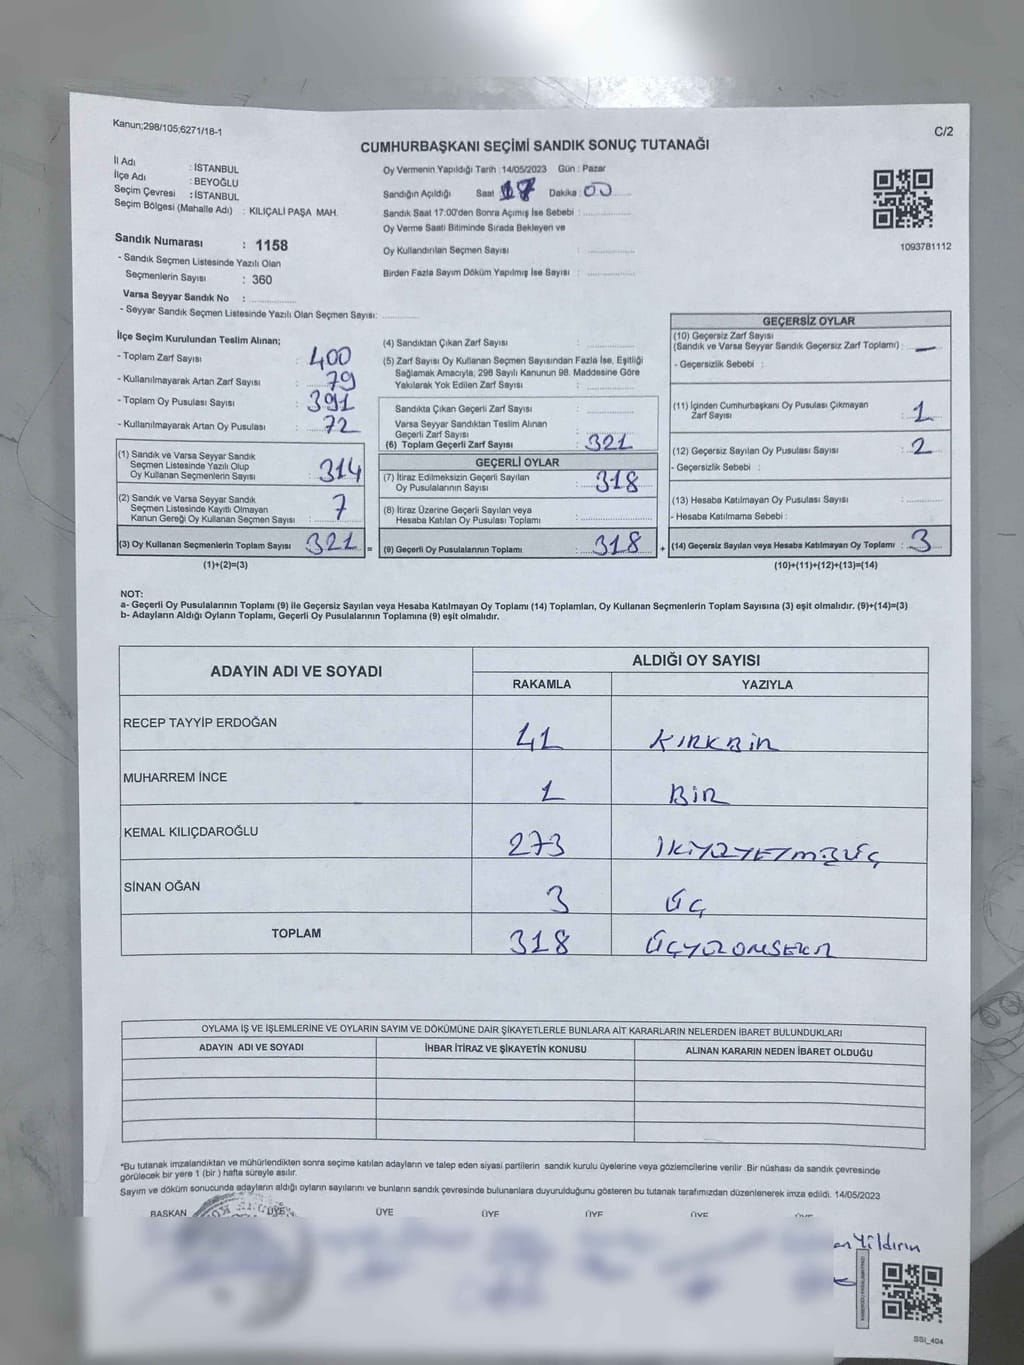 Kanun;298/105;6271/18-1
C/2
CUMHURBAŞKANI SEÇİMİ SANDIK SONUÇ TUTANAĞI
İl Adı : İSTANBUL
İlçe Adı : BEYOĞLU
Seçim Çevresi : İSTANBUL
Seçim Bölgesi (Mahalle Adı) : KILIÇALİ PAŞA MAH.
Sandık Numarası : 1158
- Sandık Seçmen Listesinde Yazılı Olan
Seçmenlerin Sayısı : 360
Varsa Seyyar Sandık No :
- Seyyar Sandık Seçmen Listesinde Yazılı Olan Seçmen Sayısı:
Oy Vermenin Yapıldığı Tarih :14/05/2023 Gün : Pazar
Sandığın Açıldığı Saat 17 Dakika 00
Sandık Saat 17:00'den Sonra Açımış İse Sebebi :
Oy Verme Saati Bitiminde Sırada Bekleyen ve
Oy Kullandırılan Seçmen Sayısı :
Birden Fazla Sayım Döküm Yapılmış İse Sayısı :
1093781112
İlçe Seçim Kurulundan Teslim Alınan;
- Toplam Zarf Sayısı : 400
- Kullanılmayarak Artan Zarf Sayısı : 79
- Toplam Oy Pusulası Sayısı : 391
- Kullanılmayarak Artan Oy Pusulası : 72
(1) Sandık ve Varsa Seyyar Sandık
Seçmen Listesinde Yazılı Olup
Oy Kullanan Seçmenlerin Sayısı : 314
(2) Sandık ve Varsa Seyyar Sandık
Seçmen Listesinde Kayıtlı Olmayan
Kanun Gereği Oy Kullanan Seçmen Sayısı : 7
(3) Oy Kullanan Seçmenlerin Toplam Sayısı : 321 =
(1)+(2)=(3)
(4) Sandıktan Çıkan Zarf Sayısı :
(5) Zarf Sayısı Oy Kullanan Seçmen Sayısından Fazla İse, Eşitliği
Sağlamak Amacıyla, 298 Sayılı Kanunun 98. Maddesine Göre
Yakılarak Yok Edilen Zarf Sayısı :
Sandıkta Çıkan Geçerli Zarf Sayısı :
Varsa Seyyar Sandıktan Teslim Alınan
Geçerli Zarf Sayısı
(6) Toplam Geçerli Zarf Sayısı : 321
GEÇERLİ OYLAR
(7) İtiraz Edilmeksizin Geçerli Sayılan
Oy Pusulalarının Sayısı : 318
(8) İtiraz Üzerine Geçerli Sayılan veya
Hesaba Katılan Oy Pusulası Toplamı :
(9) Geçerli Oy Pusulalarının Toplamı : 318 +
GEÇERSİZ OYLAR
(10) Geçersiz Zarf Sayısı
(Sandık ve Varsa Seyyar Sandık Geçersiz Zarf Toplamı) : —
- Geçersizlik Sebebi :
(11) İçinden Cumhurbaşkanı Oy Pusulası Çıkmayan
Zarf Sayısı : 1
(12) Geçersiz Sayılan Oy Pusulası Sayısı : 2
- Geçersizlik Sebebi :
(13) Hesaba Katılmayan Oy Pusulası Sayısı :
- Hesaba Katılmama Sebebi :
(14) Geçersiz Sayılan veya Hesaba Katılmayan Oy Toplamı : 3
(10)+(11)+(12)+(13)=(14)
NOT:
a- Geçerli Oy Pusulalarının Toplamı (9) ile Geçersiz Sayılan veya Hesaba Katılmayan Oy Toplamı (14) Toplamları, Oy Kullanan Seçmenlerin Toplam Sayısına (3) eşit olmalıdır. (9)+(14)=(3)
b- Adayların Aldığı Oyların Toplamı, Geçerli Oy Pusulalarının Toplamına (9) eşit olmalıdır.
ADAYIN ADI VE SOYADI ALDIĞI OY SAYISI
RAKAMLA YAZIYLA
RECEP TAYYİP ERDOĞAN 41 KIRKBİR
MUHARREM İNCE 1 BİR
KEMAL KILIÇDAROĞLU 273
SİNAN OĞAN 3 ÜÇ
TOPLAM 318
OYLAMA İŞ VE İŞLEMLERİNE VE OYLARIN SAYIM VE DÖKÜMÜNE DAİR ŞİKAYETLERLE BUNLARA AİT KARARLARIN NELERDEN İBARET BULUNDUKLARI
ADAYIN ADI VE SOYADI İHBAR İTİRAZ VE ŞİKAYETİN KONUSU ALINAN KARARIN NEDEN İBARET OLDUĞU
*Bu tutanak imzalandıktan ve mühürlendikten sonra seçime katılan adayların ve talep eden siyasi partilerin sandık kurulu üyelerine veya gözlemcilerine verilir .Bir nüshası da sandık çevresinde
görülecek bir yere 1 (bir ) hafta süreyle asılır.
Sayım ve döküm sonucunda adayların aldığı oyların sayılarını ve bunların sandık çevresinde bulunanlara duyurulduğunu gösteren bu tutanak tarafımızdan düzenlenerek imza edildi. 14/05/2023
BAŞKAN ÜYE ÜYE ÜYE ÜYE
Yıldırım
SSI_404